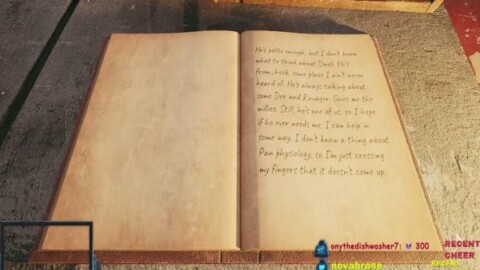 He's polite enough, but I don't know
what to think about Dwell. He's
from, heck, some place I ain't never
heard of. He's always talking about
some Dre and Ravager. Gives me the
willies. Still, he's one of us, so I hope
if he ever needs me, I can help in
some way. I don't know a thing about
Pan physiology, so I'm just crossing
my fingers that it doesn't come up.
onythedishwasher7: 300
novabrose
RECENT
CHEER